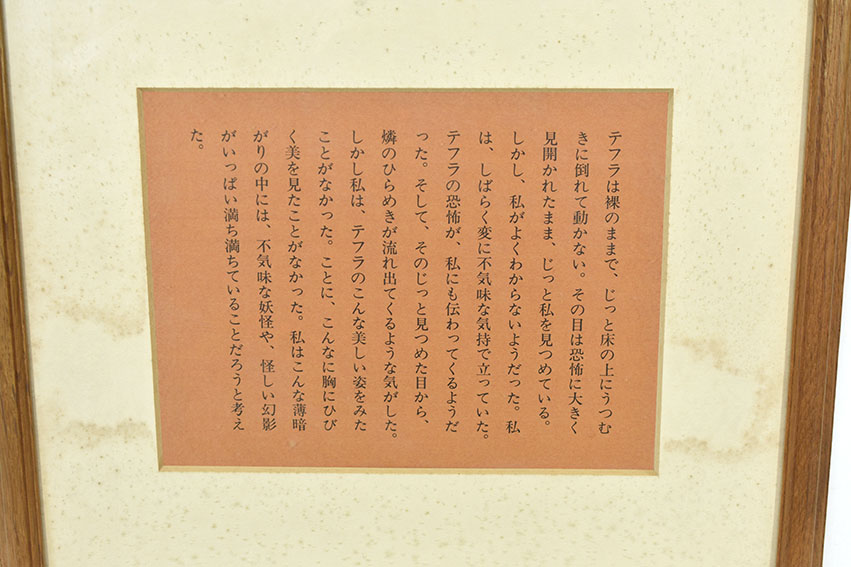 テフラは裸のままで、じっと床の上にうつむ
きに倒れて動かない。その目は恐怖に大きく
見開かれたまま、じっと私を見つめている。
しかし、私がよくわからないようだった。私
は、しばらく変に不気味な気持で立っていた。
テフラの恐怖が、私にも伝わってくるようだ
った。そして、そのじっと見つめた目から、
燐のひらめきが流れ出てくるような気がした。
しかし私は、テフラのこんな美しい姿をみた
ことがなかった。ことに、こんなに胸にひび
く美を見たことがなかった。私はこんな薄暗
がりの中には、不気味な妖怪や、怪しい幻影
がいっぱい満ち満ちていることだろうと考え
た。